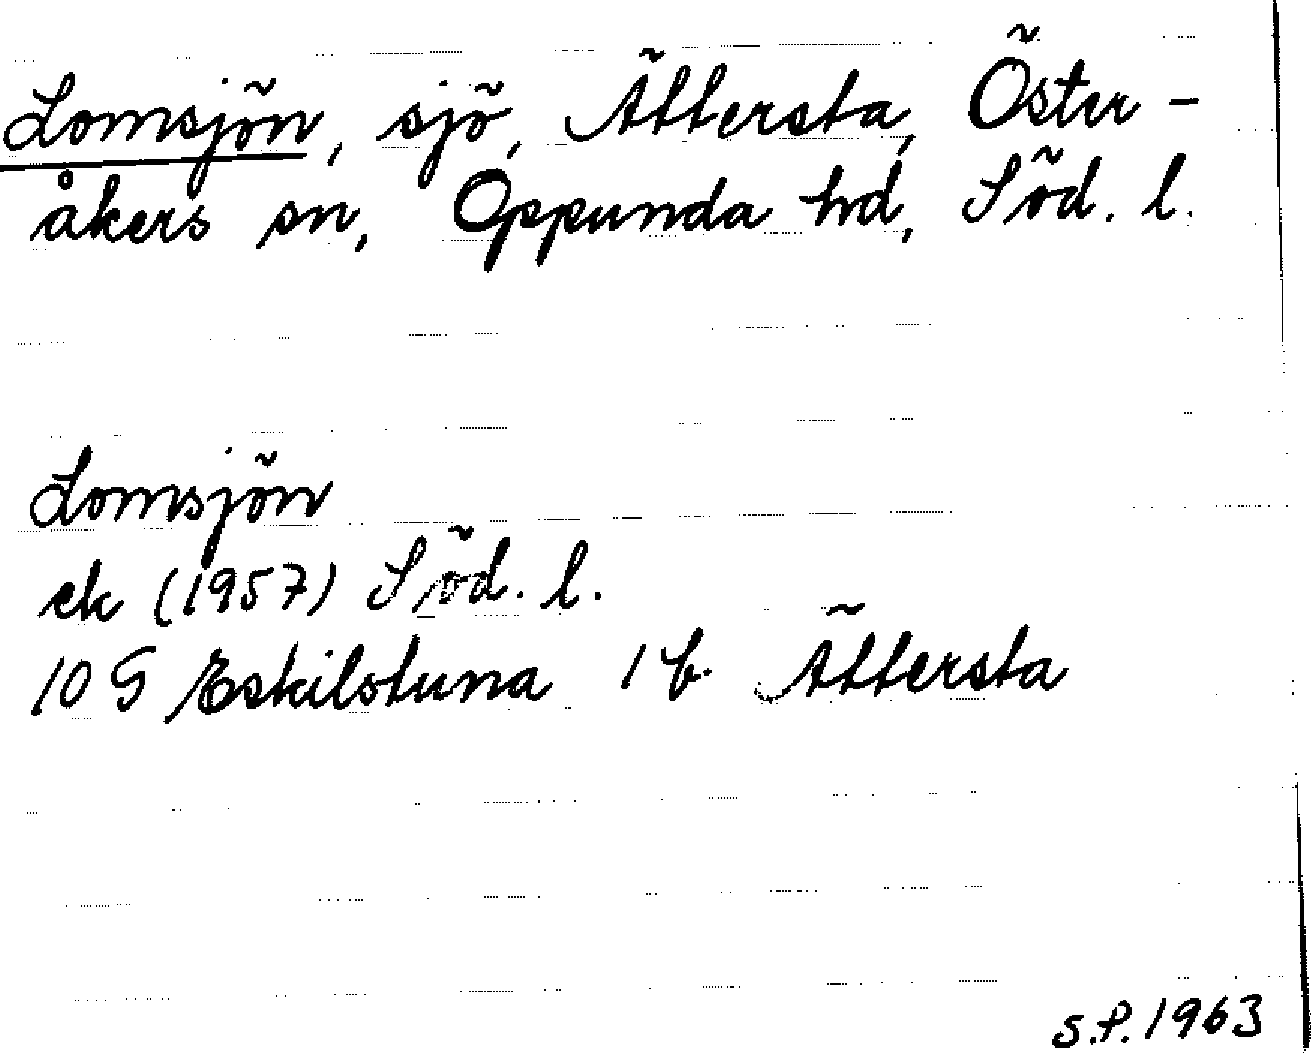 Lomsjön, sjö, Ättersta, Öster-
åkers sn, Oppunda hd, Söd. l.
Lomsjön
ek (1957) Söd. l.
10 G Eskilstuna 1 b. Ättersta
S.P. 1963